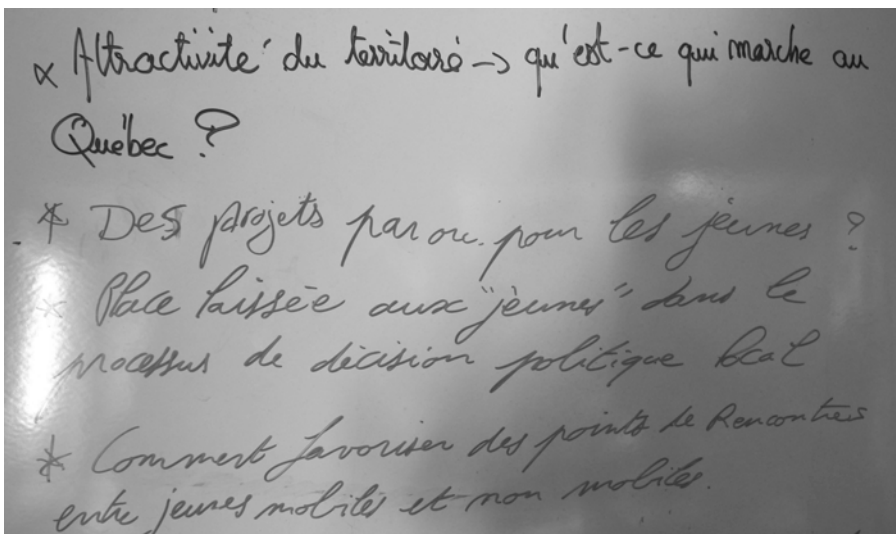 * Attractivité du territoire -> qu'est-ce qui marche au
Québec ?
* Des projets par ou pour les jeunes ?
* Place laissée aux "jeunes" dans le
processus de décision politique local
* Comment favoriser des points de Rencontres
entre jeunes mobiles et non mobiles.